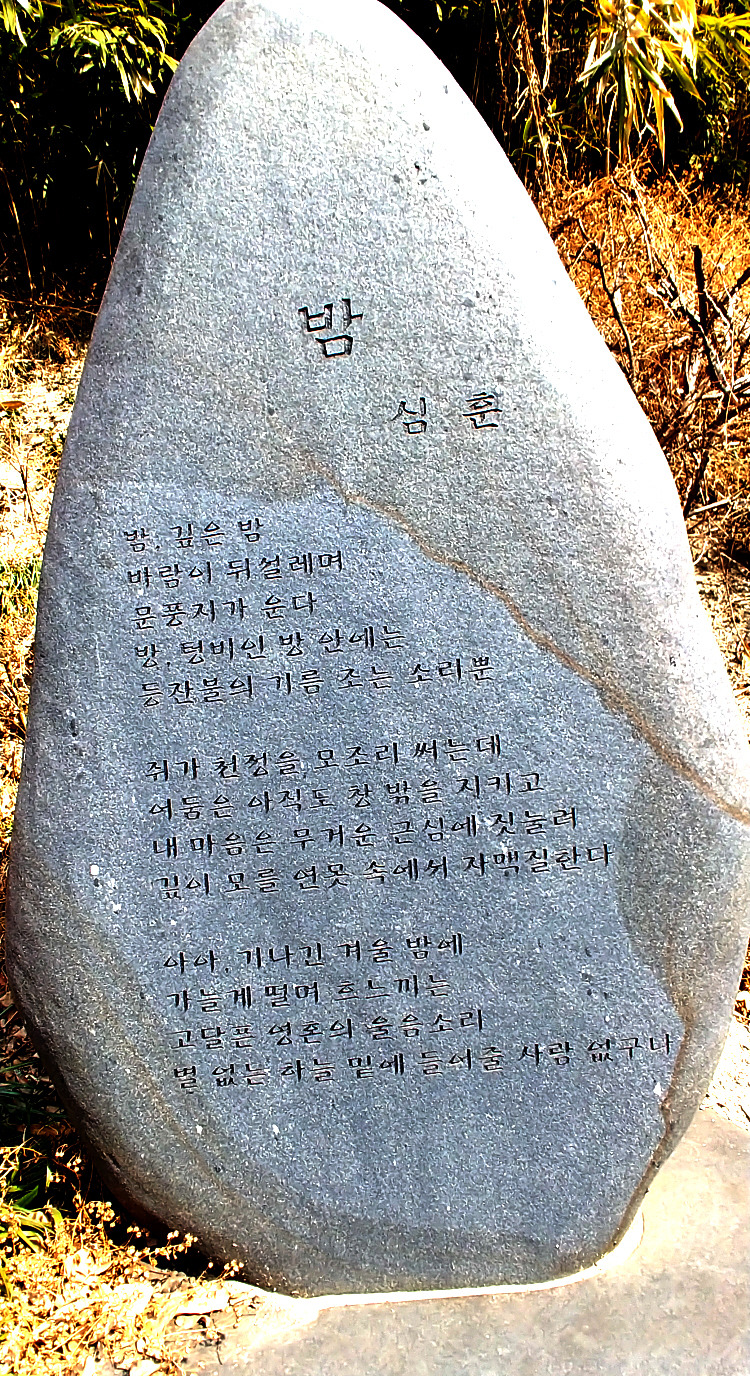 밤
심 훈
밤, 깊은 밤
바람이 뒤설레며
문풍지가 운다
방, 텅비인 방 안에는
등잔불의 기름 조는 소리뿐
쥐가 천정을 모조리 써는데
어둠은 아직도 창 밖을 지키고
내 마음은 무거운 근심에 짓눌려
깊이 모를 연못 속에서 자맥질한다
아아, 기나긴 겨울 밤에
가늘게 떨며 흐느끼는
고달픈 영혼의 울음소리
별 없는 하늘 밑에 들어줄 사람 없구나